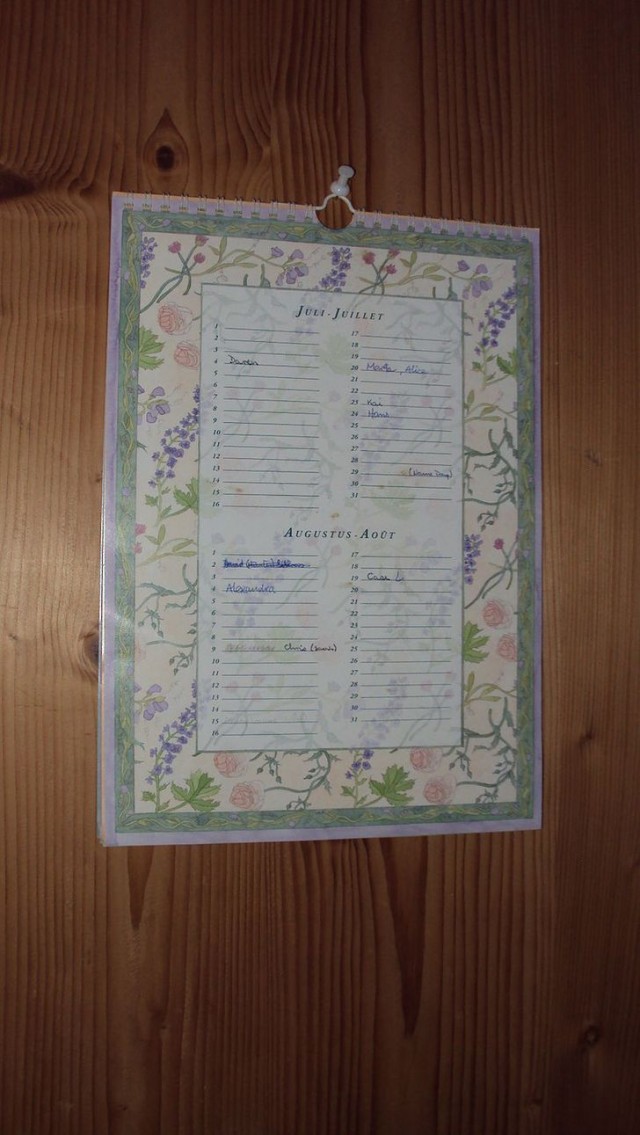 JULI-JUILLET
1
2
3
4
5
6
7
8
9
10
11
12
13
14
15
16
17
18
19
20 , Alice
21
22
23 Kai
24 Hans
25
26
27
28
29
30
31
AUGUSTUS-AOÛT
1
2
3
4 Alexandra
5
6
7
8
9 Chris
10
11
12
13
14
15
16
17
18
19
20
21
22
23
24
25
26
27
28
29
30
31